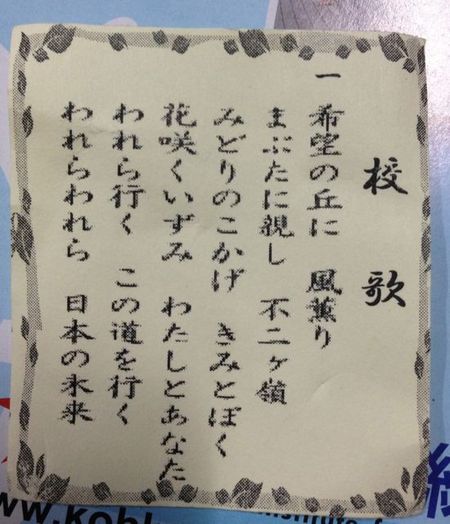 校歌
一 希望の丘に 風薫り
まぶたに親し 不二ヶ嶺
みどりのこかげ きみとぼく
花咲くいずみ わたしとあなた
われら行く この道を行く
われらわれら 日本の未来